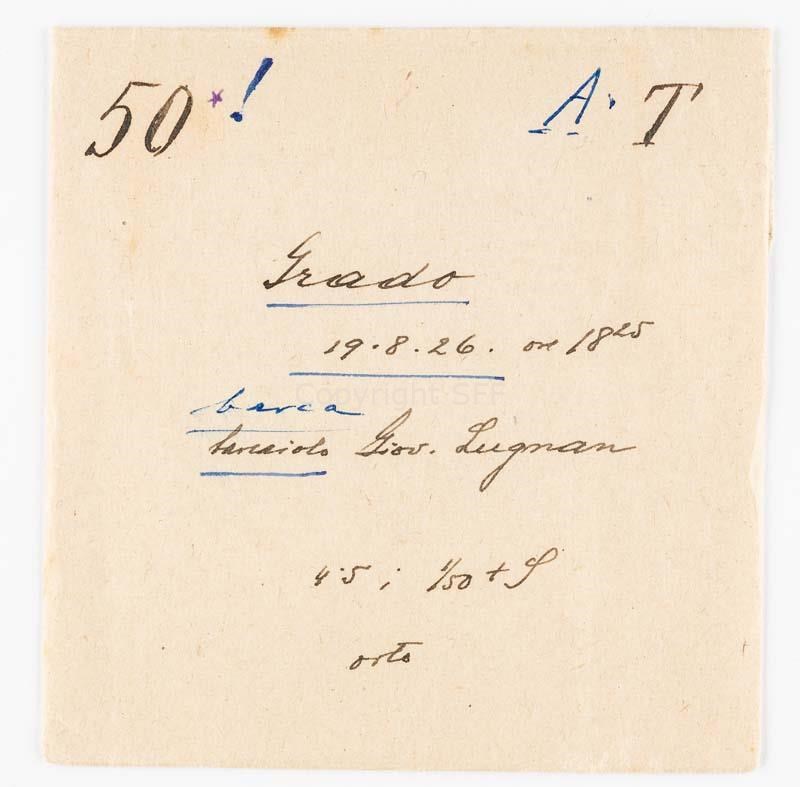 50*! A. T
Grado
19.8.26. ore 18²⁵
Copyright SFF
barca
barcaiolo Giov. Lugnan
4.5 ; 1/50 + S
orto